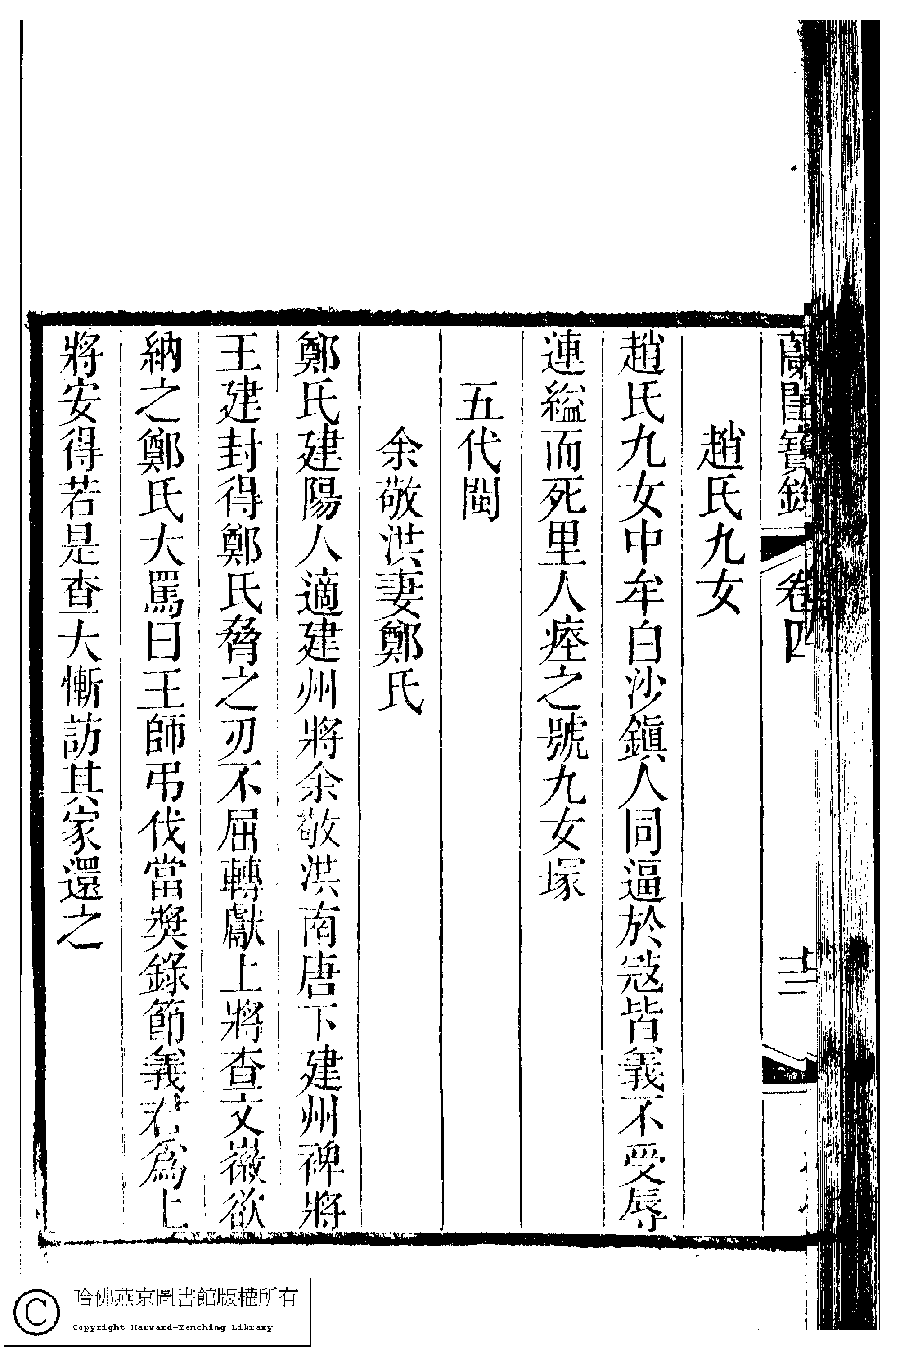 蘭閨寶錄 卷四 十二
趙氏九女
趙氏九女中牟白沙鎮人同逼於寇皆義不受辱
連縊而死里人瘞之號九女塚
五代閩
余敬洪妻鄭氏
鄭氏建陽人適建州將余敬洪南唐下建州裨將
王建封得鄭氏脅之刃不屈轉獻上將查文徽欲
納之鄭氏大罵曰王師弔伐當獎錄節義君為上
將安得若是查大慚訪其家還之
哈佛燕京圖書館版權所有
Copyright Harvard-Yenching Library